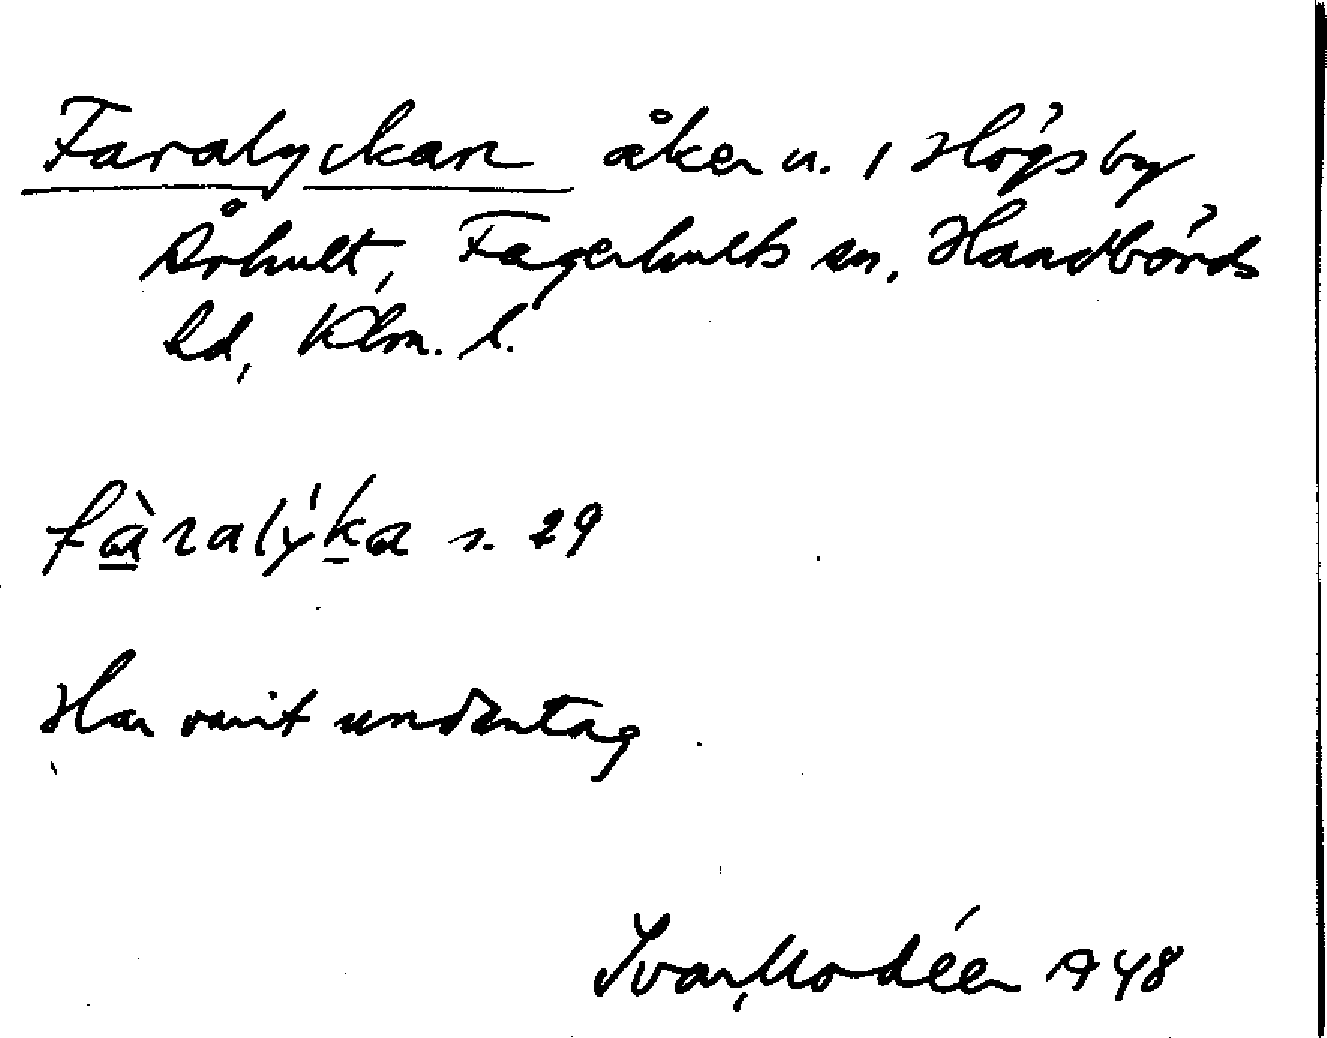 Faralyckan åker u. 1 Högsby
Århult, Fagerhults sn, Handbörds
hd, Klm. l.
fàralýka s. 29
Har varit undantag
Ivar Modéer 1948